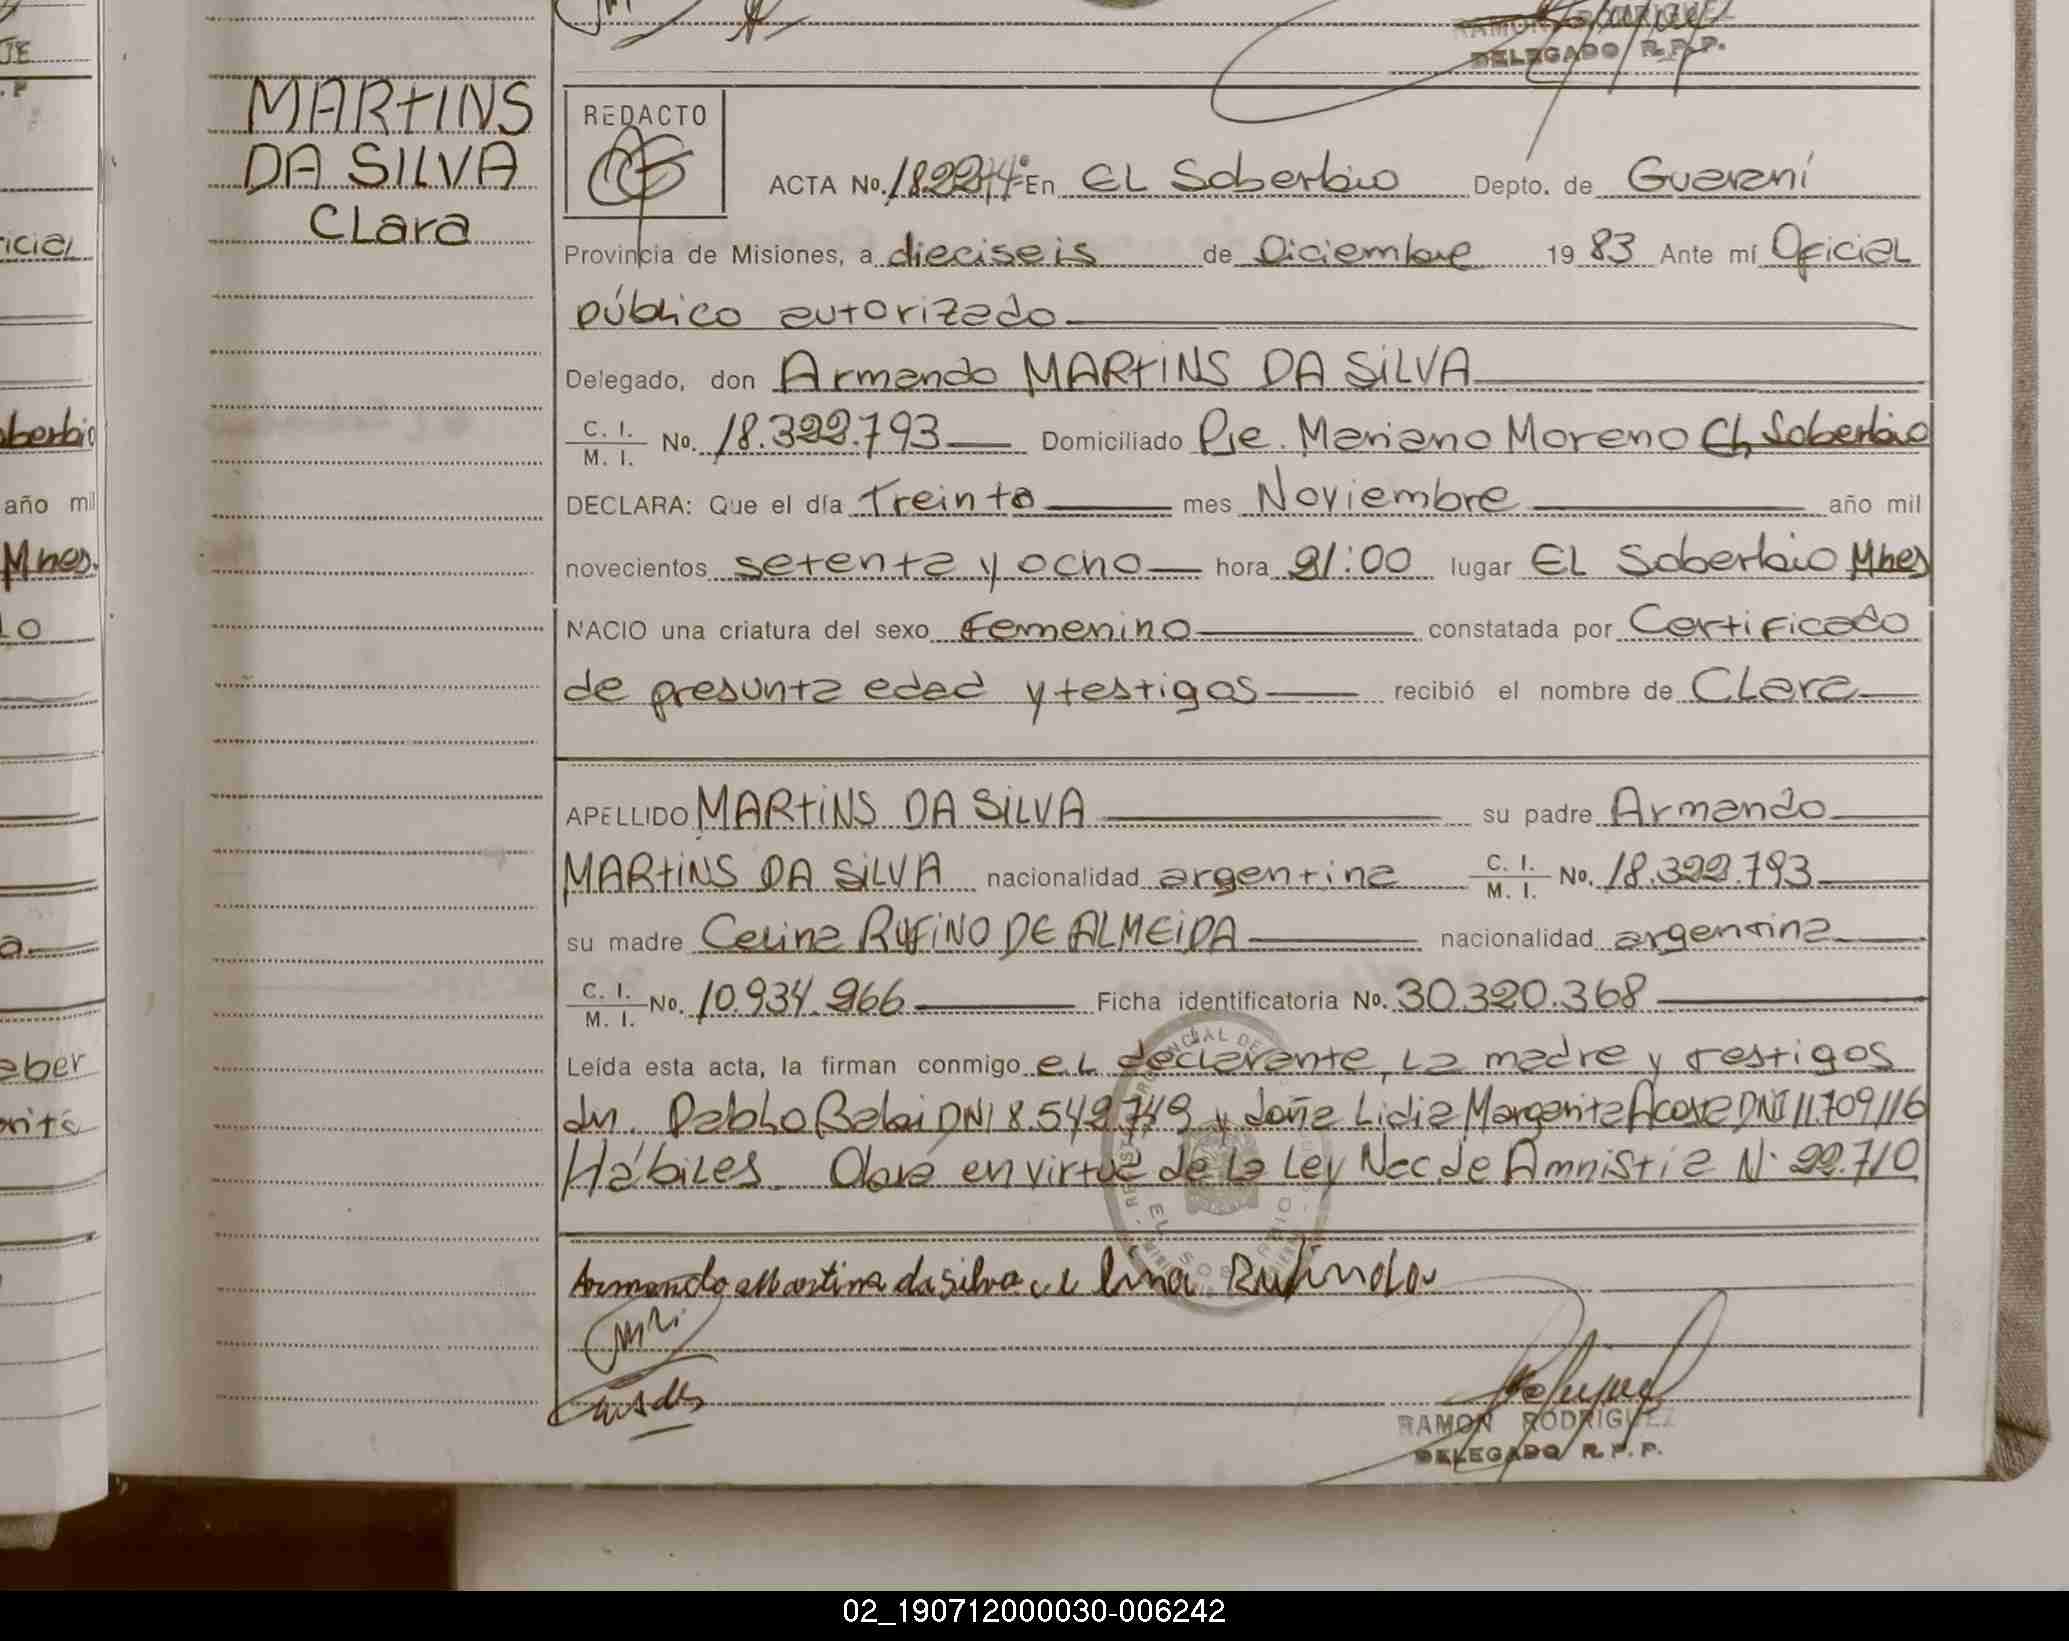 RAMON RODRIGUEZ
DELEGADO R.P.P.
MARTINS
DA SILVA
CLara
REDACTO
ACTA No. En EL Soberbio Depto. de Guaraní
Provincia de Misiones, a dieciseis de Diciembre 19 83 Ante mí Oficial
público autorizado
Delegado, don Armando MARTINS DA SILVA
C. I. M. I. No. 18.322.793 Domiciliado Pje. Mariano Moreno EL Soberbio
DECLARA: Que el día Treinta mes Noviembre año mil
novecientos setenta y ocho hora 21:00 lugar EL Soberbio Mnes
NACIO una criatura del sexo Femenino constatada por Certificado
de presunta edad y testigos recibió el nombre de CLara
APELLIDO MARTINS DA SILVA su padre Armando
MARTINS DA SILVA nacionalidad argentina C. I. M. I. No. 18.322.793
su madre Celina RUFINO DE ALMEIDA nacionalidad argentina
C. I. M. I. No. 10.934.266 Ficha identificatoria No. 30.320.368
Leída esta acta, la firman conmigo eL declarante, La madre y testigos
dn. Pablo DNI 8.549.749 y doña Lidia Margarita Acosta DNI 11.709.116
Hábiles. Obra en virtud de la Ley Nac. de Amnistia N° 22.710
Armando Martins da silva
RAMON RODRIGUEZ
DELEGADO R.P.P.
02_190712000030-006242